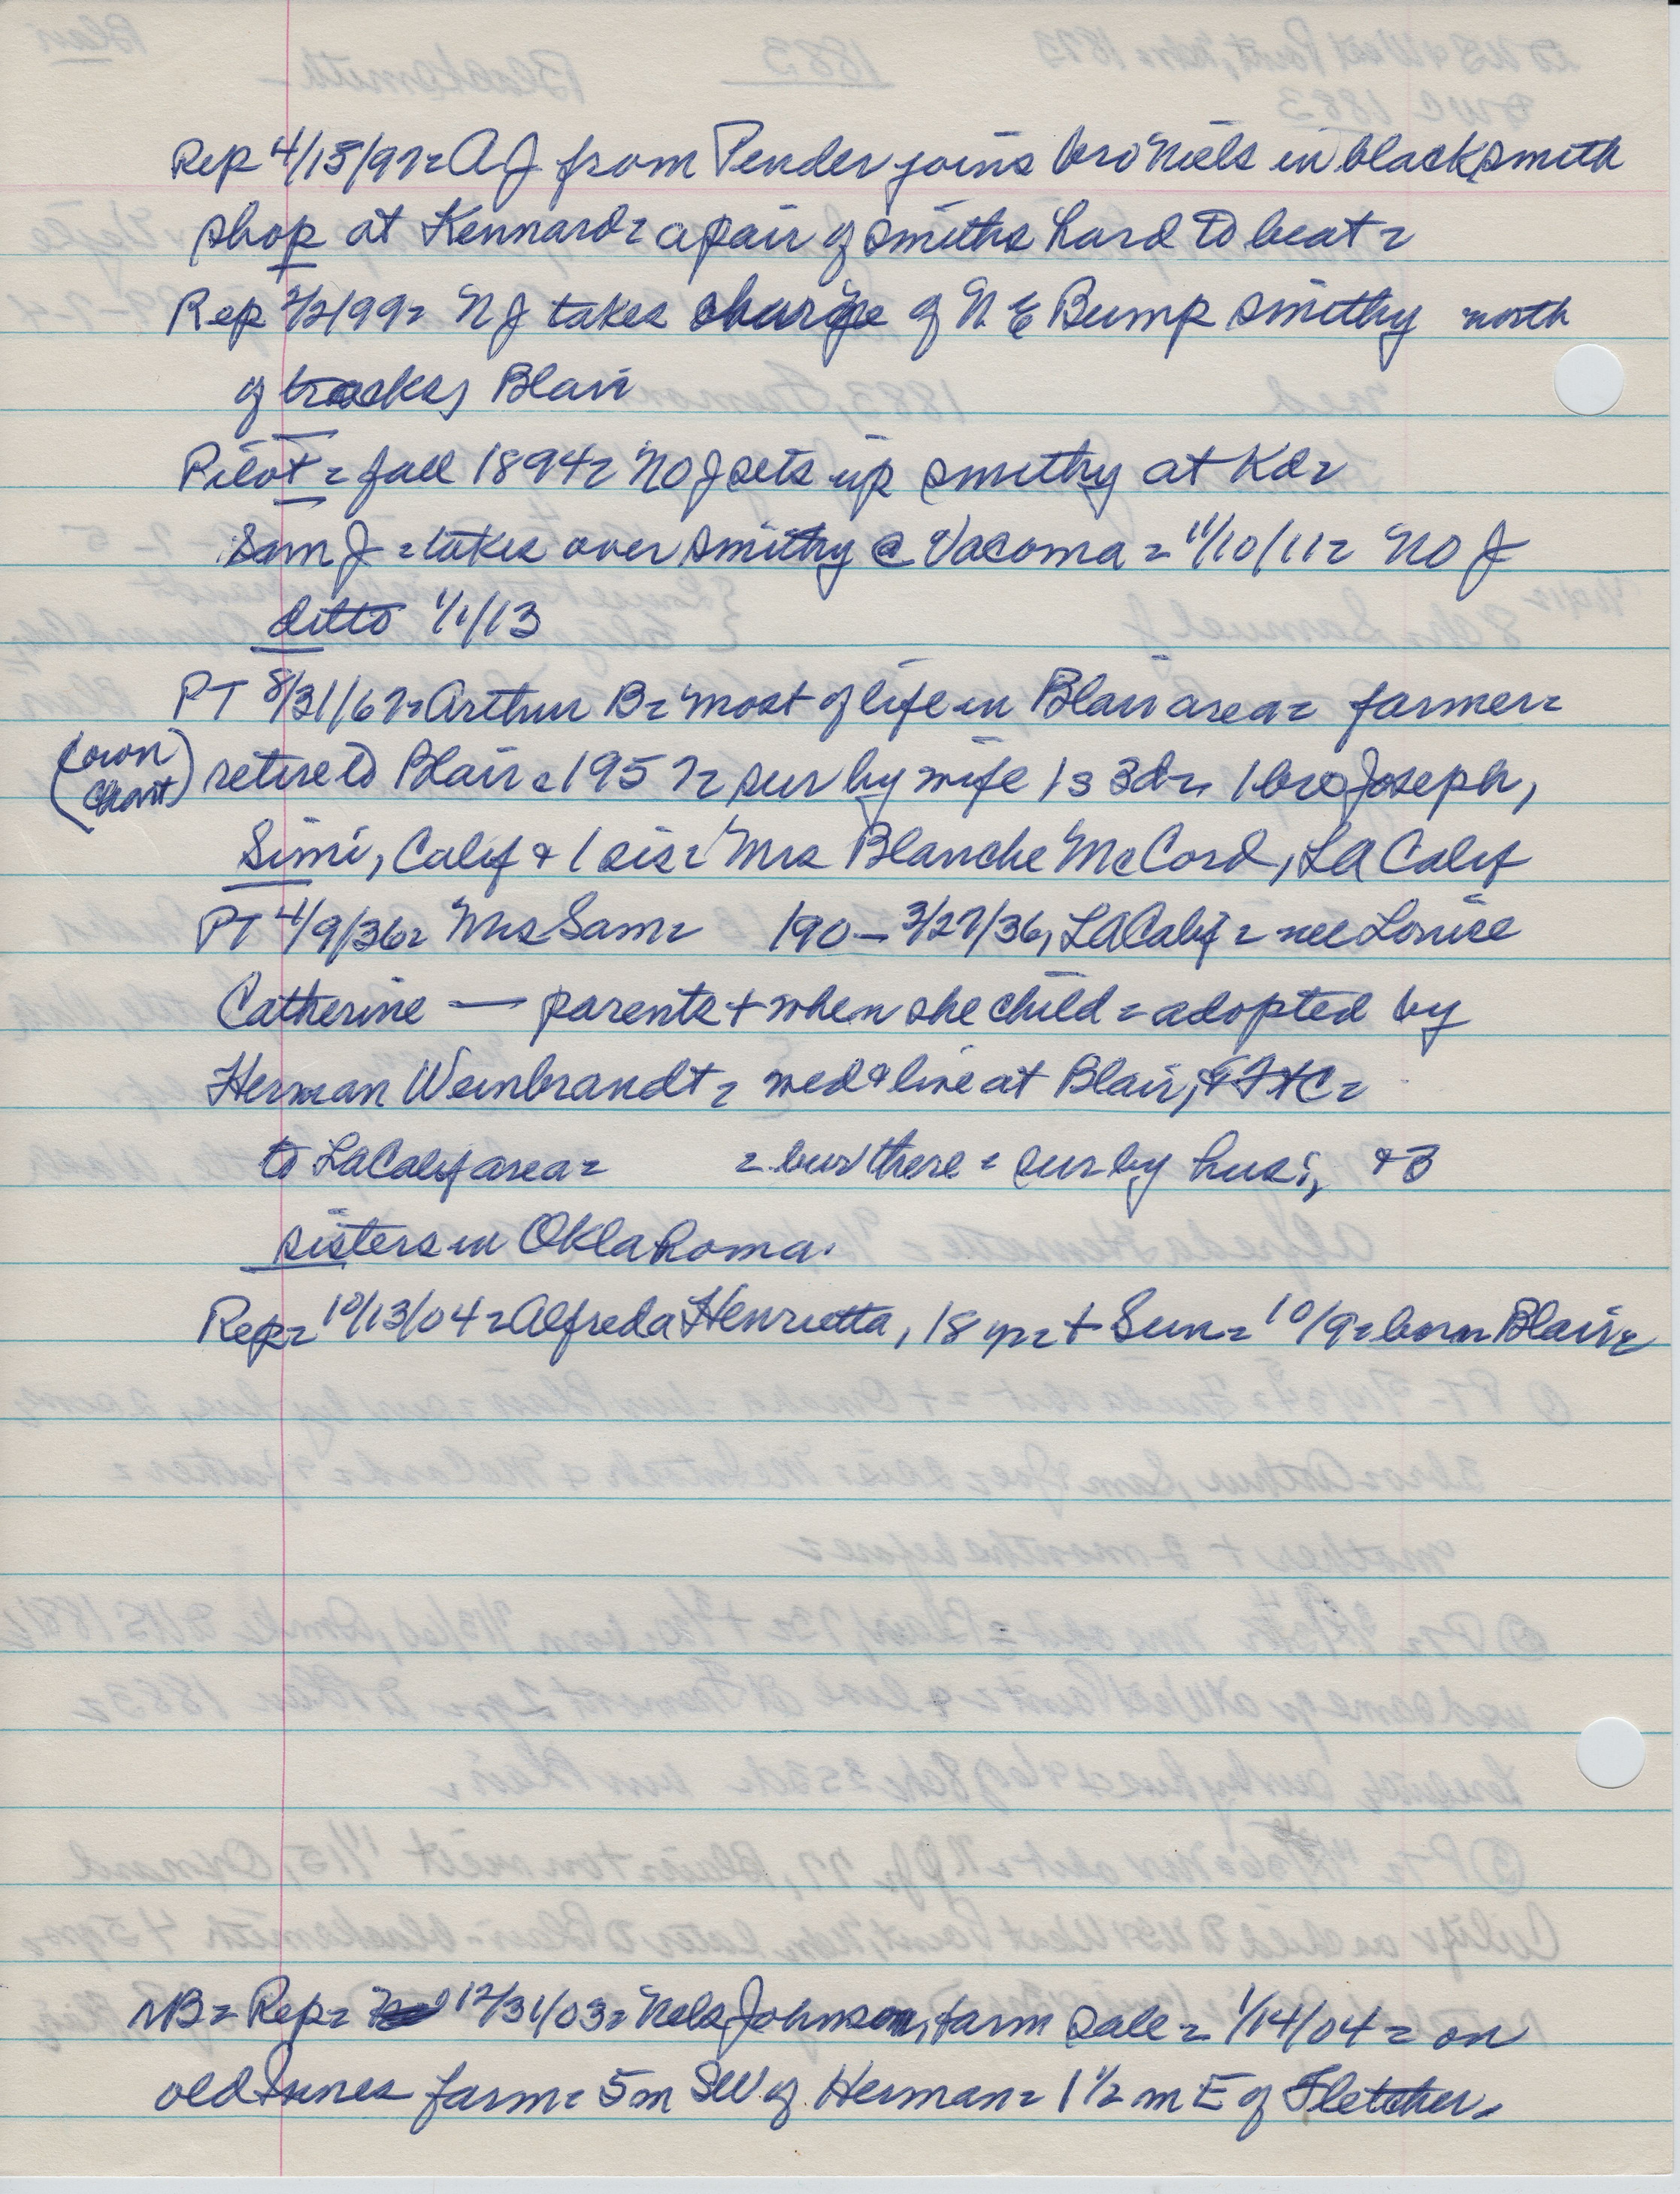 Rep 4/15/97= A J from Pender joins bro Niels in blacksmith
shop at Kennard= a pair of smiths hard to beat=
Rep 2/2/99= N J takes charge of N E Bump smithy north
of tracks, Blair
Pilot= fall 1894= NO J sets up smithy at Kd=
Sam J= takes over smithy @ Vacoma= 11/10/11= NO J
ditto 1/1/13
PT 8/31/67= Arthur B= most of life in Blair area= farmer=
(own chart) retire to Blair c 1957= sur by wife 1s 3d= 1 bro Joseph,
Simi, Calif & 1 sis= Mrs Blanche McCord, LA Calif
PT 4/9/36= Mrs Sam= 190— 3/27/36, LA Calif= nee Louise
Catherine — parents + when she child= adopted by
Herman Weinbrandt= wed & live at Blair,
to LA Calif area= = bur there= sur by hus; & 3
sisters in Oklahoma.
Rep= 10/13/04= Alfreda Henrietta, 18 yr= + Sun= 10/9= born Blair=
NB= Rep= 12/31/03= Nels Johnson, farm sale= 1/14/04= on
old farm= 5m SW of Herman= 1 1/2 m E of Fletcher.